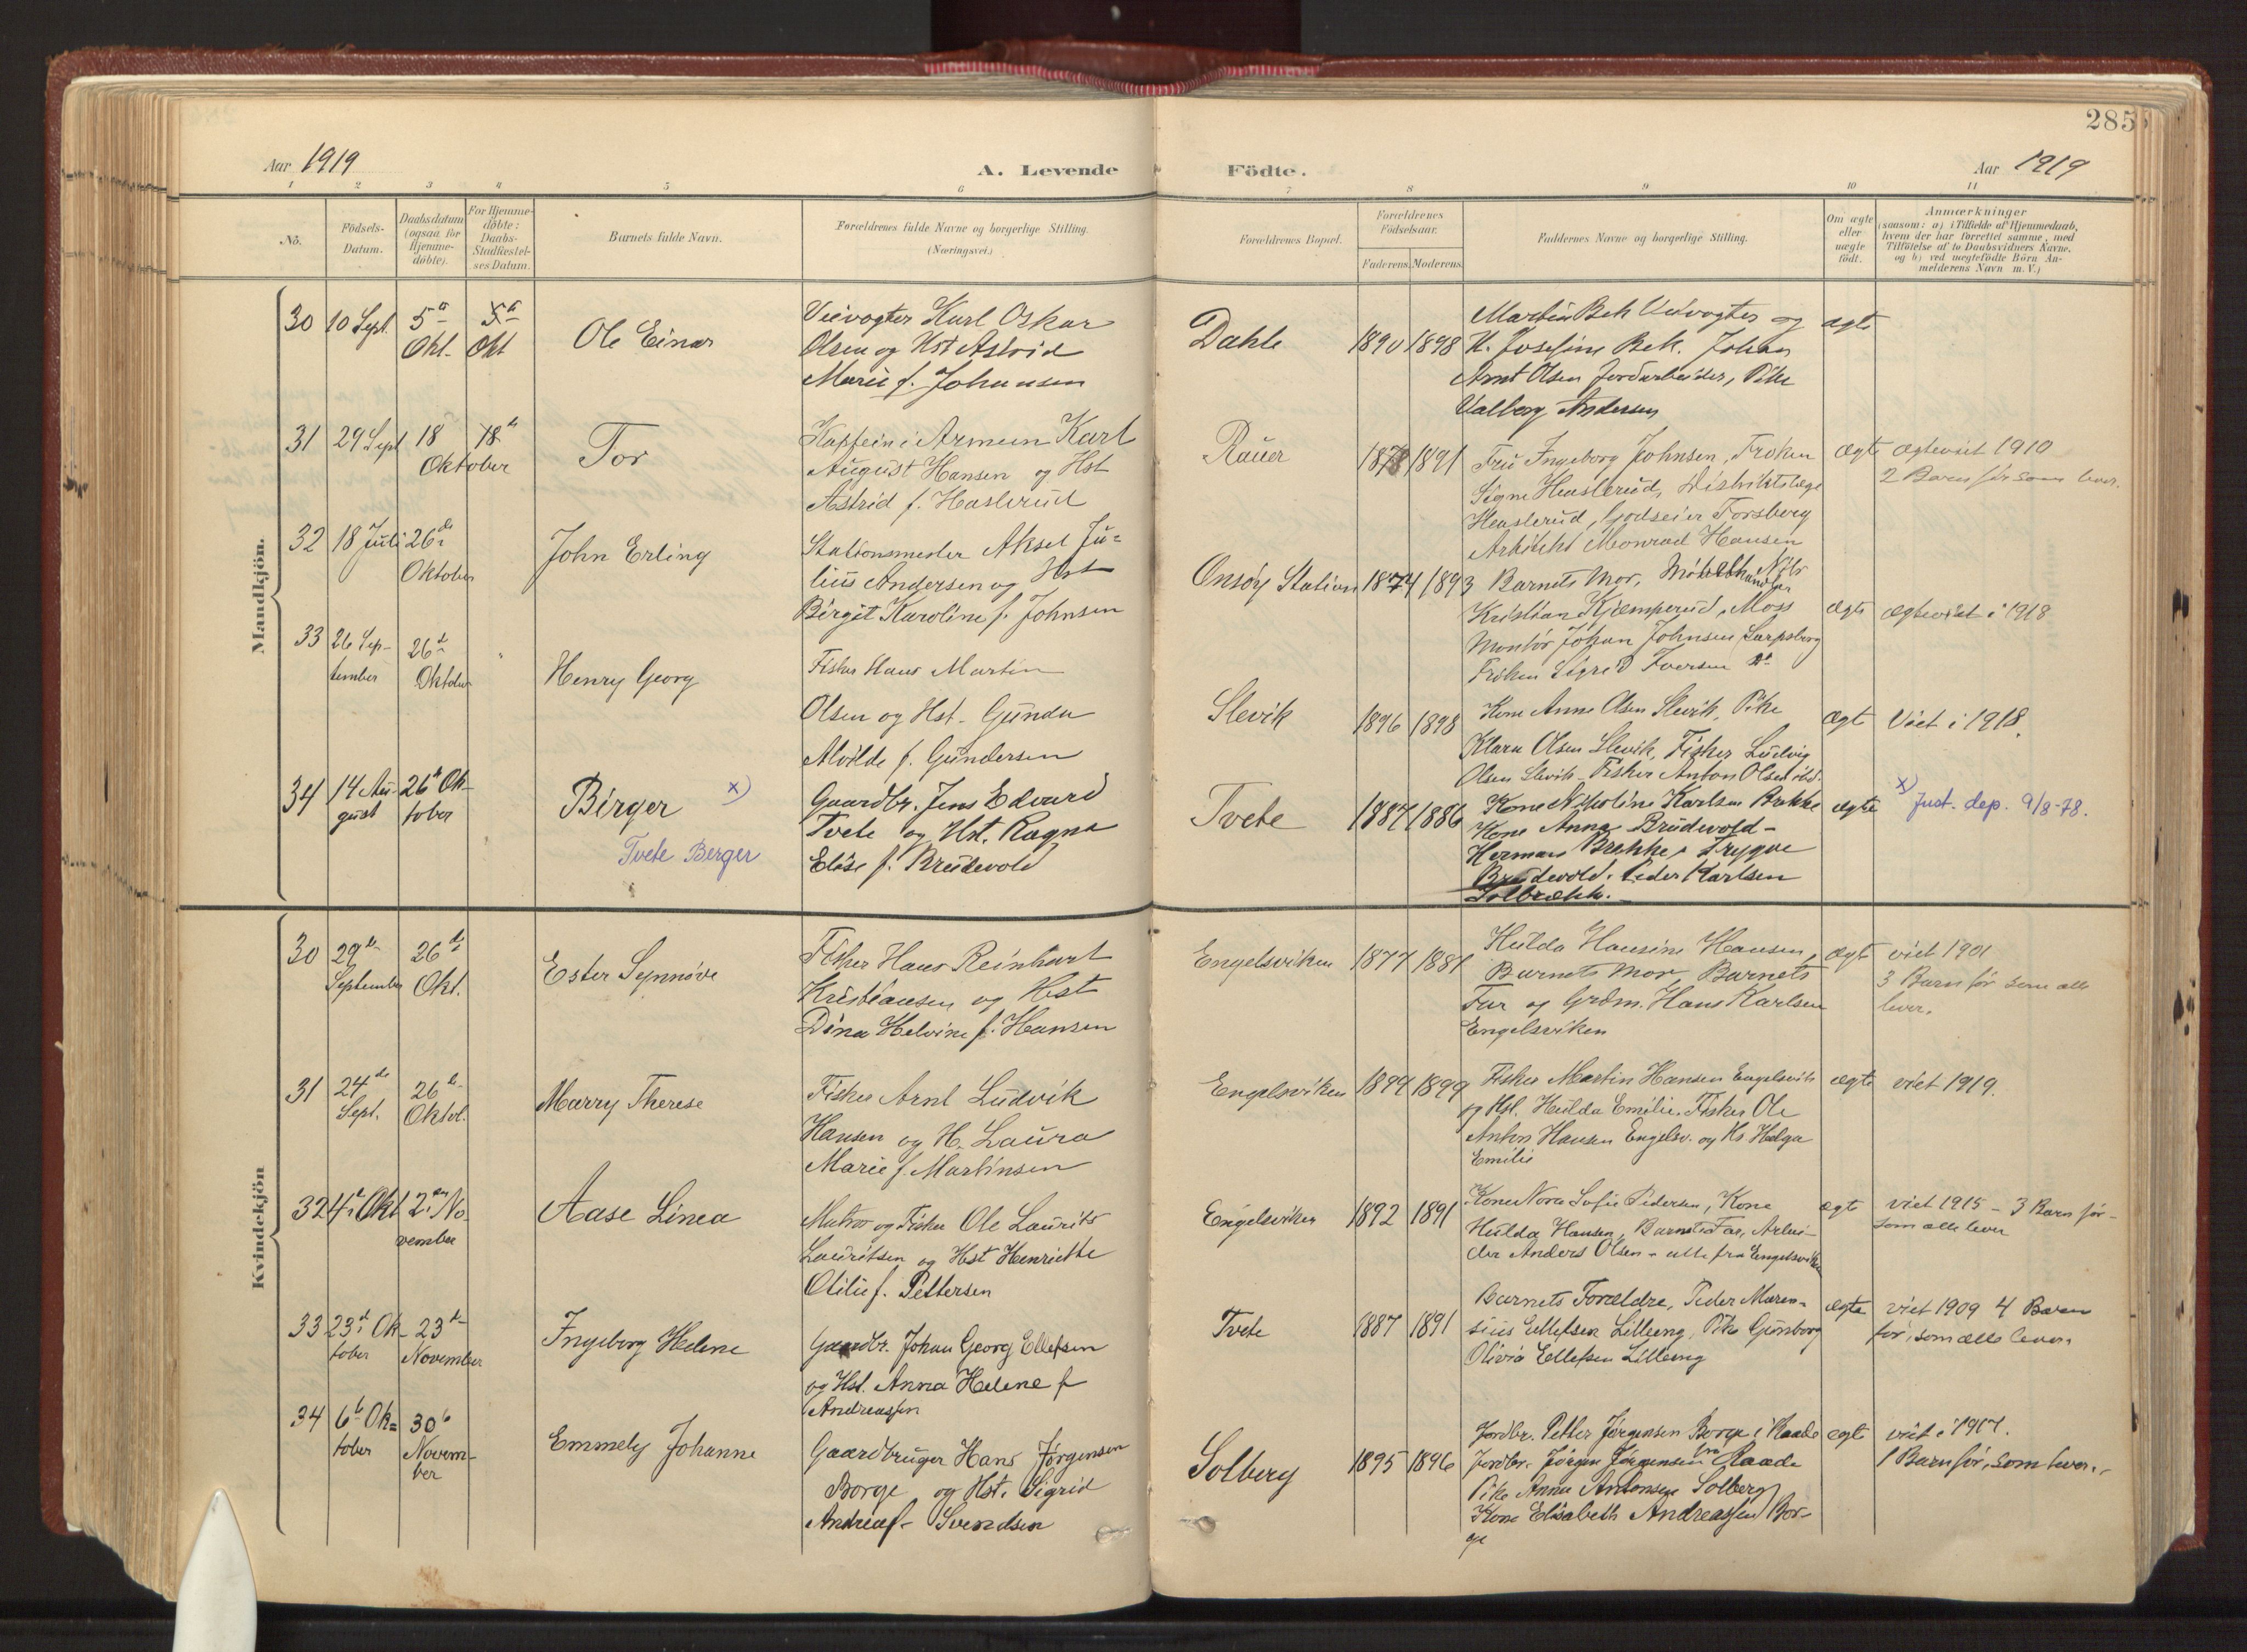 285
Aar 1919
A. Levende
Födte.
Aar 1919
1 2 3 4 5 6 7 8 9 10 11
Nö.
Födsels-
Datum.
Daabsdatum
(ogsaa for
Hjemme-
döbte).
For Hjemme-
döbte:
Daabs-
Stadfæstel-
ses Datum.
Barnets fulde Navn.
Forældrenes fulde Navne og borgerlige Stilling.
(Næringsvei.)
Forældrenes Bopæl.
Forældrenes
Födselsaar.
Faderens. Moderens.
Faddernes Navne og borgerlige Stilling.
Om ægte
eller
uægte
födt.
Anmærkninger
(saasom: a) i Tilfælde af Hjemmedaab,
hvem der har forrettet samme, med
Tilföielse af to Daabsvidners Navne,
og b) ved uegtefödte Börn An-
melderens Navn m. V.)
Mandkjön.
30
10 Sept.
5te
Okt.
5te
Okt
Ole Einar
Veivogter Karl Oskar
Olsen og Hst Astrid
Marie f. Johansen
Dahle
1890
1898
Martin Bek Veivogter og
H. Josefine Bek. Johan
Arnt Olsen Jordarbeider, Pike
Valborg Andersen
ægte
31
29 Sept
18
Oktober
18de
Tor
Kaptein i Armeen Karl
August Hansen og Hst
Astrid f. Haslerud
Rauer
1878
1891
Fru Ingeborg Johnsen, Frøken
Signe Haslerud, Distriktslæge
Haslerud, Godseier Forsberg
Arkitekt Monrad Hansen
ægte
ægteviet 1910
2 Barn før som lever.
32
18 Juli
26de
Oktober
John Erling
Stationsmester Aksel Ju=
lius Andersen og Hst
Birgit Karoline f. Johnsen
Onsøy Station
1874
1893
Barnets Mor, Møbelhandler
Kristian Kjæmperud, Moss
Montør Johan Johnsen Sarpsborg
Frøken Sigrid Iversen
ægte
ægteviet i 1918
33
26 Sep-
tember
26de
Oktober
Henry Georg
Fisker Hans Martin
Olsen og Hst. Gunda
Alvilde f. Gundersen
Slevik
1896
1898
Kone Anne Olsen Slevik, Pike
Klara Olsen Slevik, Fisker Ludvig
Olsen Slevik - Fisker Anton Olsen ibd.
ægte
Viet i 1918.
34
14 Au-
gust
26de Ok-
tober
Birger x)
Tvete Berger
Gaardbr. Jens Edvard
Tvete og Hst. Ragna
Elise f. Brudevold
Tvete
1887
1886
Kone Nikoline Karlsen Brekke
Kone Anna Brudevold -
Herman Brekke, Trygve
Brudevold. Peder Karlsen
Solbrækk.
ægte
x) Just. dep. 9/8-78.
Kvindekjön
30
29de
September
26de
Okt.
Ester Synnöve
Fisker Hans Reinhart
Kristiansen og Hst
Dina Helvine f. Hansen
Engelsviken
1877
1881
Hulda Hansine Hansen,
Barnets Mor, Barnets
Far og Grdm. Hans Karlsen
Engelsviken
ægte
viet 1901
3 Barn før som alle
lever.
31
24de
Sept.
26de
Oktob.
Marry Therese
Fisker Arnt Ludvik
Hansen og H. Laura
Marie f. Martinsen
Engelsviken
1894
1899
Fisker Martin Hansen Engelsvik
og Hst. Hulda Emilie. Fisker Ole
Anton Hansen Engelsv. og Hs Helga
Emilie
ægte
viet 1919.
32
4de Okt
2den No-
vember
Aase Linea
Matros og Fisker Ole Laurits
Lauritsen og Hst Henriette
Otilie f. Pettersen
Engelsviken
1892
1891
Kone Nora Sofie Pedersen, Kone
Hulda Hansen, Barnets Far, Arbei-
der Anders Olsen - alle fra Engelsviken
ægte
viet 1915 - 3 Barn før-
som alle lever
33
23de Ok-
tober
23de
November
Ingeborg Helene
Gaardbr. Johan Georg Ellefsen
og Hst. Anna Helene f
Andreassen
Tvete
1887
1891
Barnets Forældre, Peder Maren-
sius Ellefsen Lilleeng, Pike Gunborg
Olivia Ellefsen Lilleeng
ægte
viet 1909 4 Barn
før, som alle lever.
34
6te Ok=
tober
30te
Novem-
ber
Emmely Johanne
Gaardbruger Hans Jørgensen
Borge og Hst. Sigrid
Andrea f. Svendsen
Solberg
1895
1896
Jordbr. Petter Jørgensen Borge i Raade
Jordbr. Jørgen Jørgensen fra Raade
Pike Anna Antonsen Solberg
Kone Elisabeth Andreassen Bor-
ge
ægte
viet i 1917.
1 Barn før, som lever.